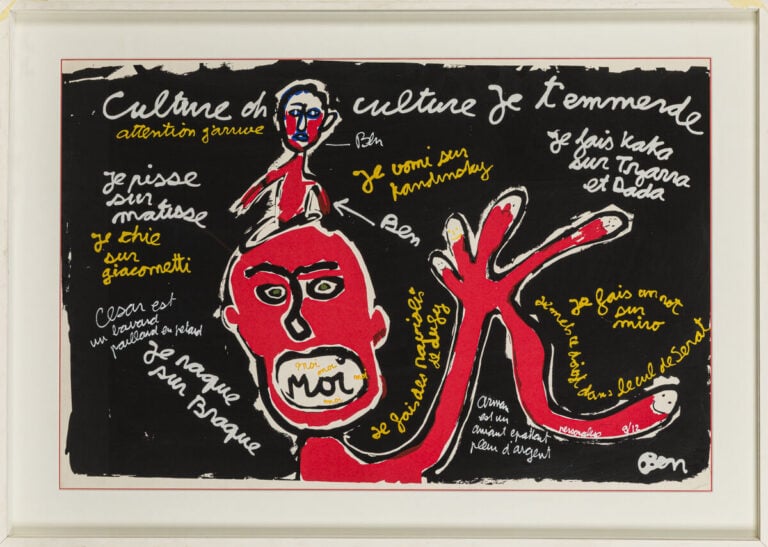 Culture oh culture Je t'emmerde
attention j'arrive
Ben
Je vomi sur
Kandinsky
Je fais Kaka
sur Tzarra
et Dada
Je pisse
sur
matisse
Ben
Je chie
sur
giacometti
Cesar est
un bavard
paillard en petard
Je fais un rot
sur
miro
dans le cul de Serat
moi moi
moi
MOI
moi
Je raque
sur Braque
Je fais des ravioli
de Dufy
Arman
est un
amant epatant
plein d'argent
8/12
Ben